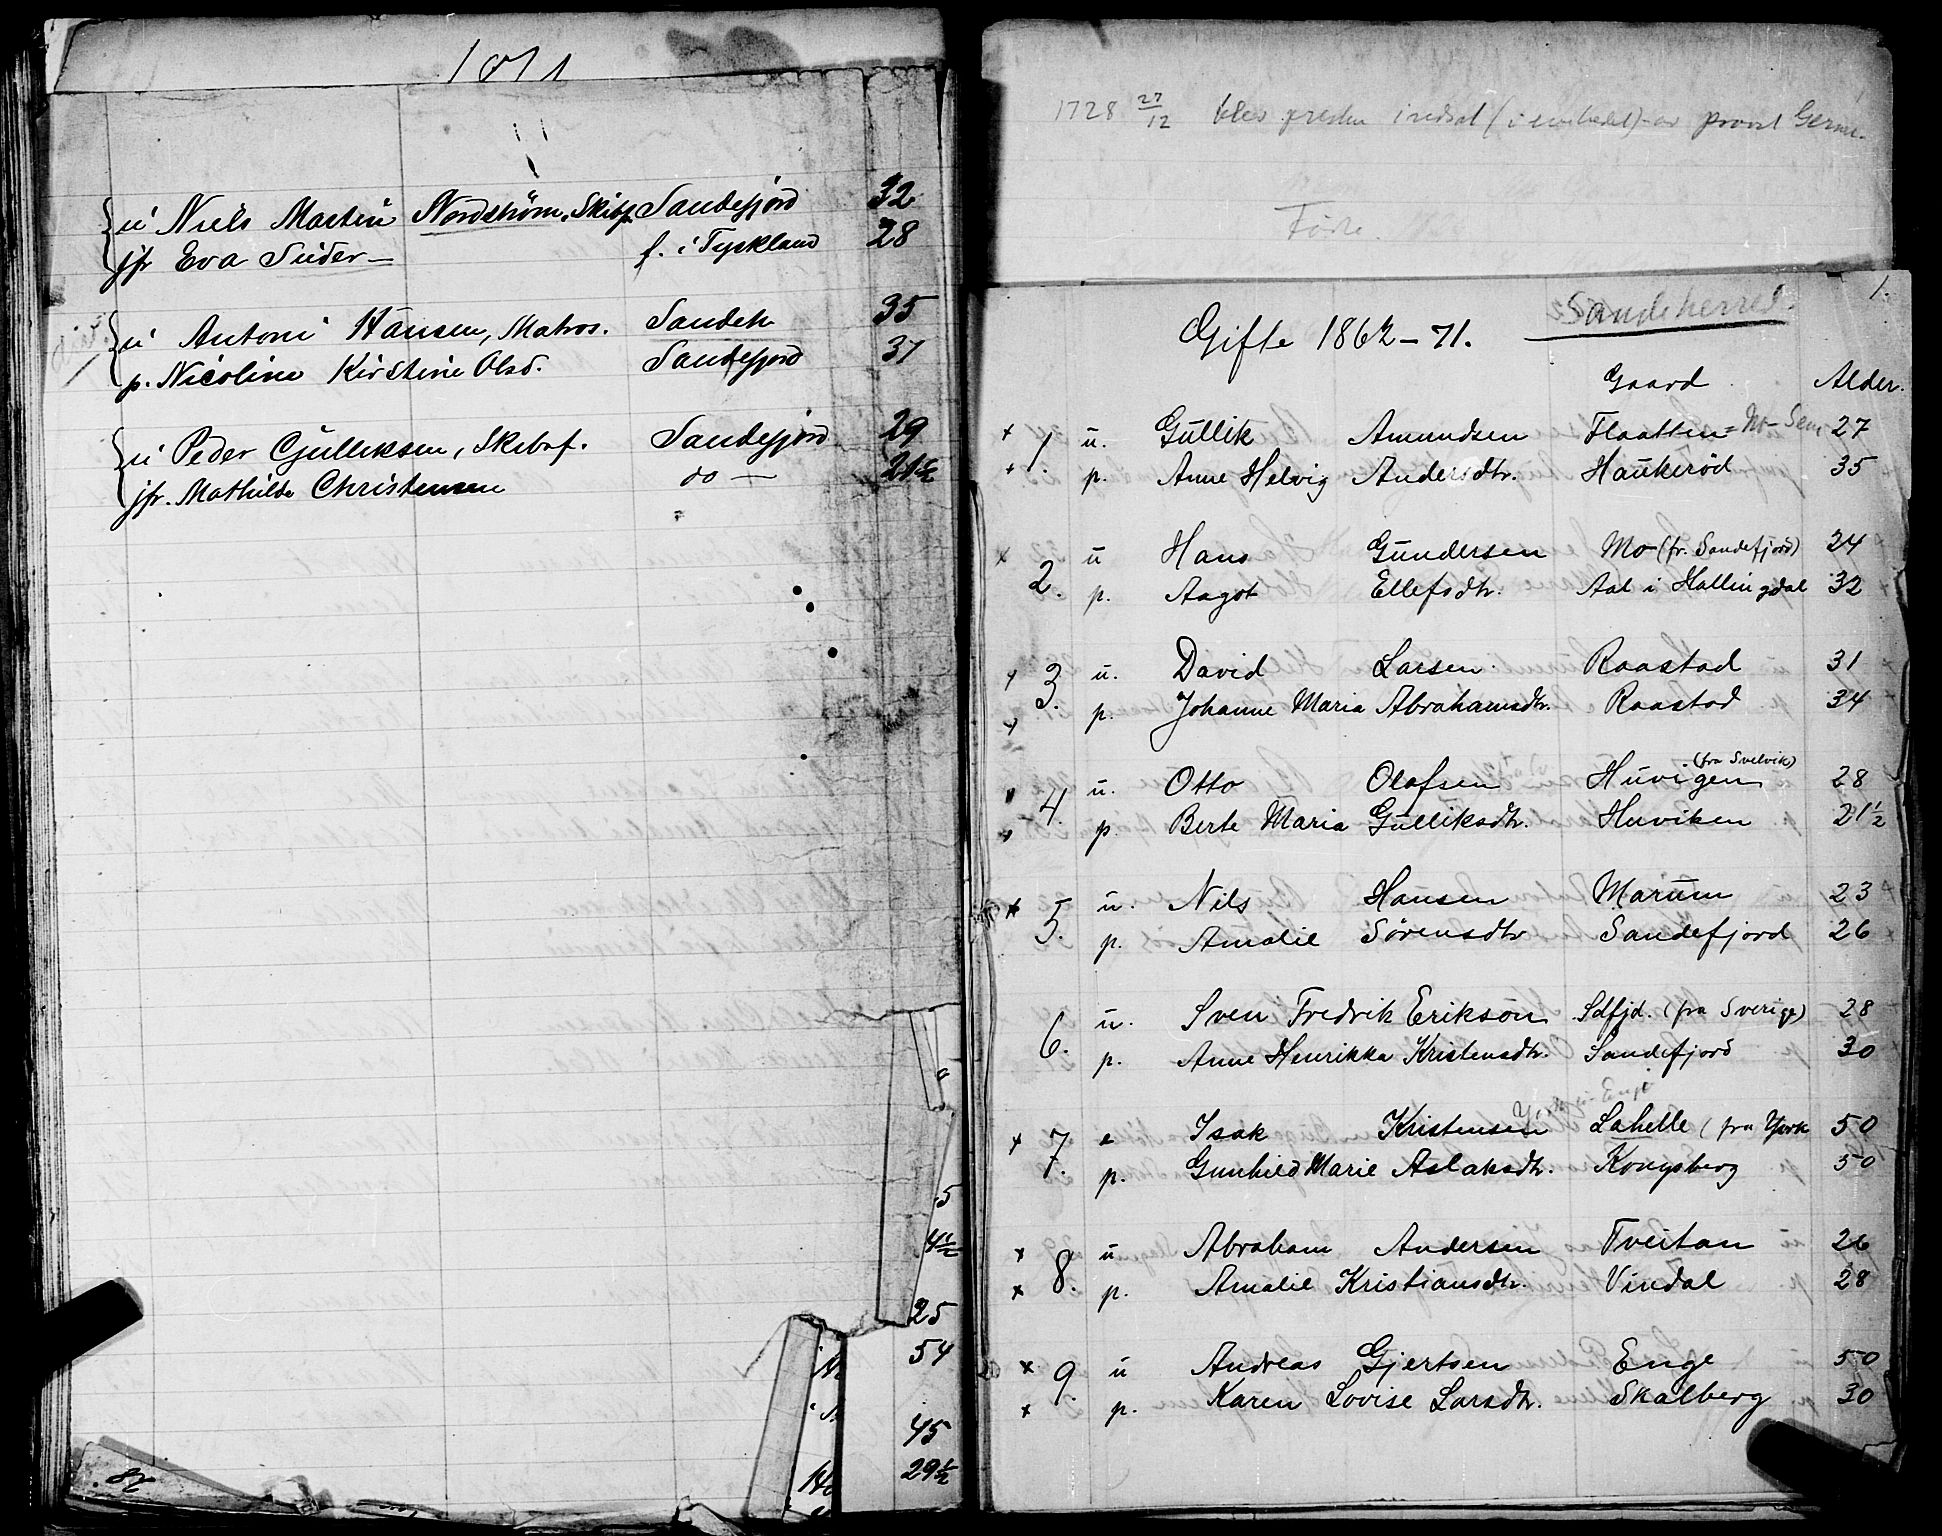 1871
ü Niels Martin Nordstrøm, Skibsf. Sandefjord 32
jfr Eva Suder — f. i Tyskland 28
ü Antoni Hansen, Matros. Sandeh 35
p. Nicoline Kirstine Olsd. Sandefjord 37
ü Peder Gulliksen, Skibsf. Sandefjord 29
jfr. Mathilde Christensen do — 21½
5
4½
25
54
45
29½
1728 27/12 blev presten indsat (i embedet) av provst
Gifte 1862-71. Sandeherred. 1.
Gaard Alder.
1. ü. Gullik Amundsen Flaatten = Mo- Sem 27
p. Anne Helvig Andersdtr. Haukerød 35
2. ü Hans Gundersen Mo (fr. Sandefjord) 24
p. Aagot Ellefsdtr. Aal i Hallingdal 32
3. ü. David Larsen. Raastad 31
p. Johanne Maria Abrahamsdtr. Raastad 34
4. ü. Otto Olafsen Huvigen (fra Svelvik) 28
p Berte Maria Gulliksdtr. Huviken 21½
5. ü. Nils Hansen Marum 23
p. Amalie Sørensdtr Sandefjord 26
6. ü. Sven Fredrik Erikson Sdfjd. (fra Sverige) 28
p. Anne Henrikka Kristensdtr. Sandefjord 30
York in Engl
7. e Isak Kristensen Lahelle (fra York 50
p. Gunhild Marie Aslaksdtr. Kongsberg 50
8. ü Abraham Andersen Tveitan 26
p. Amalie Kristiansdtr. Vindal 28
9. ü Andreas Gjertsen Enge 50
p. Karen Lovise Larsdtr. Skalberg 30